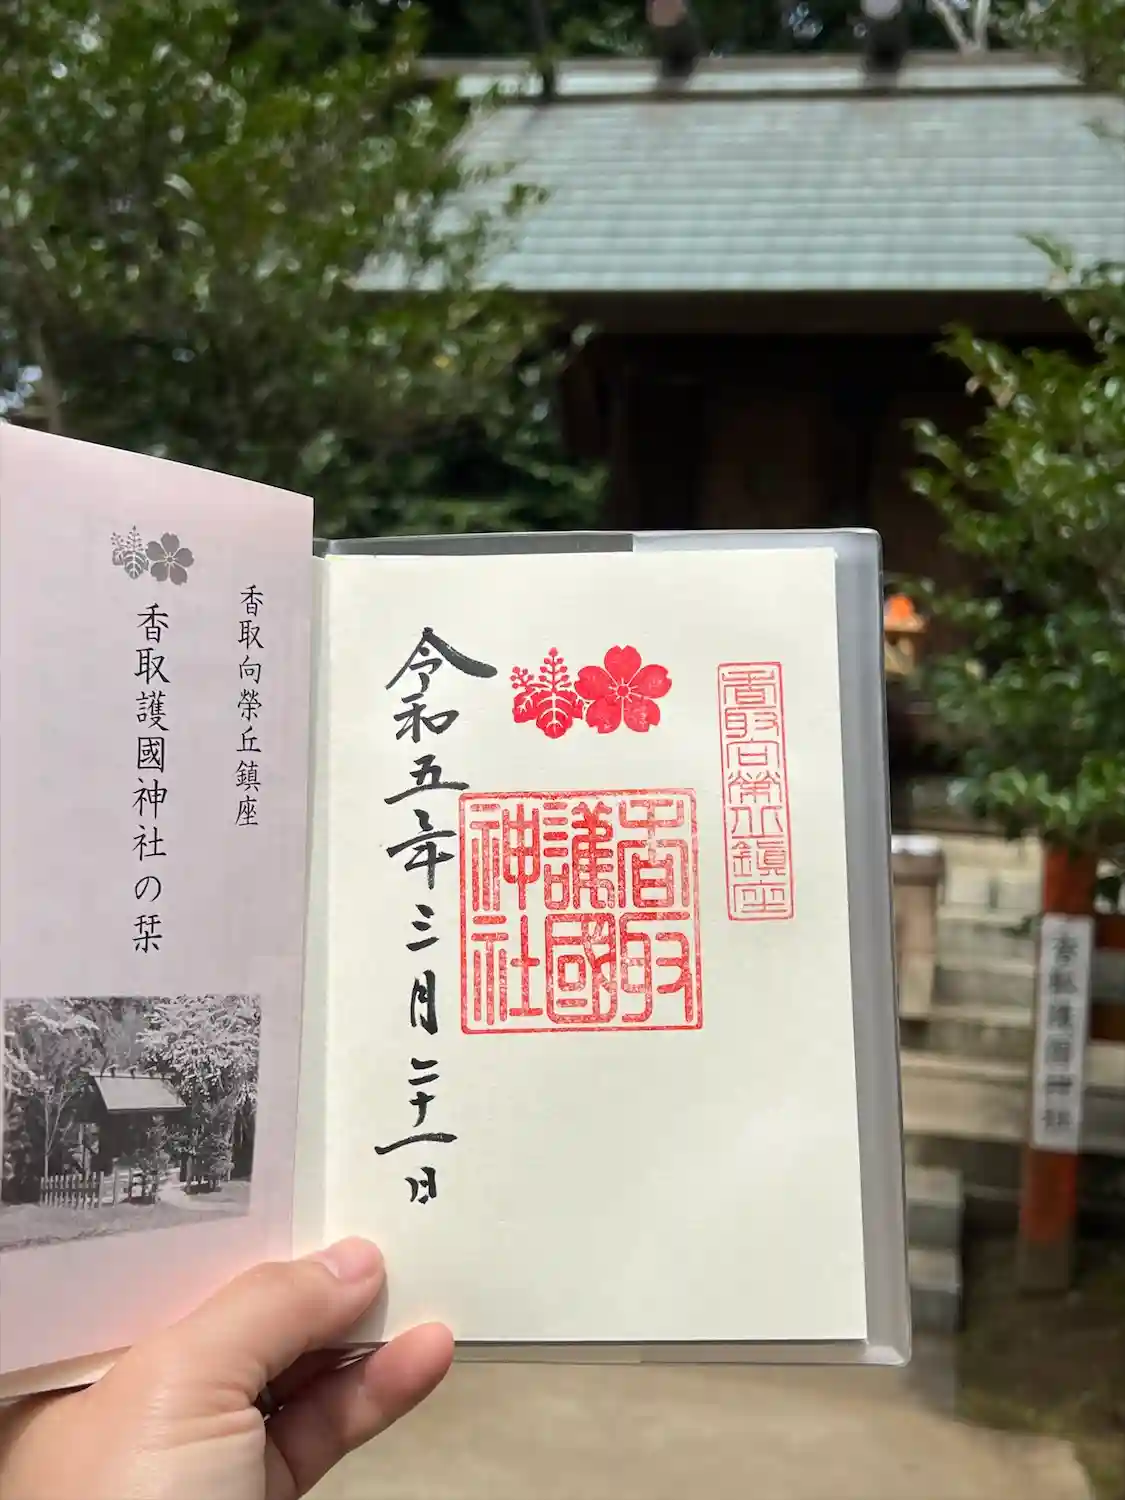 香取向榮丘鎮座
香取護國神社の栞
香取向榮丘鎮座
香取護國神社
令和五年三月二十一日
香取護国神社